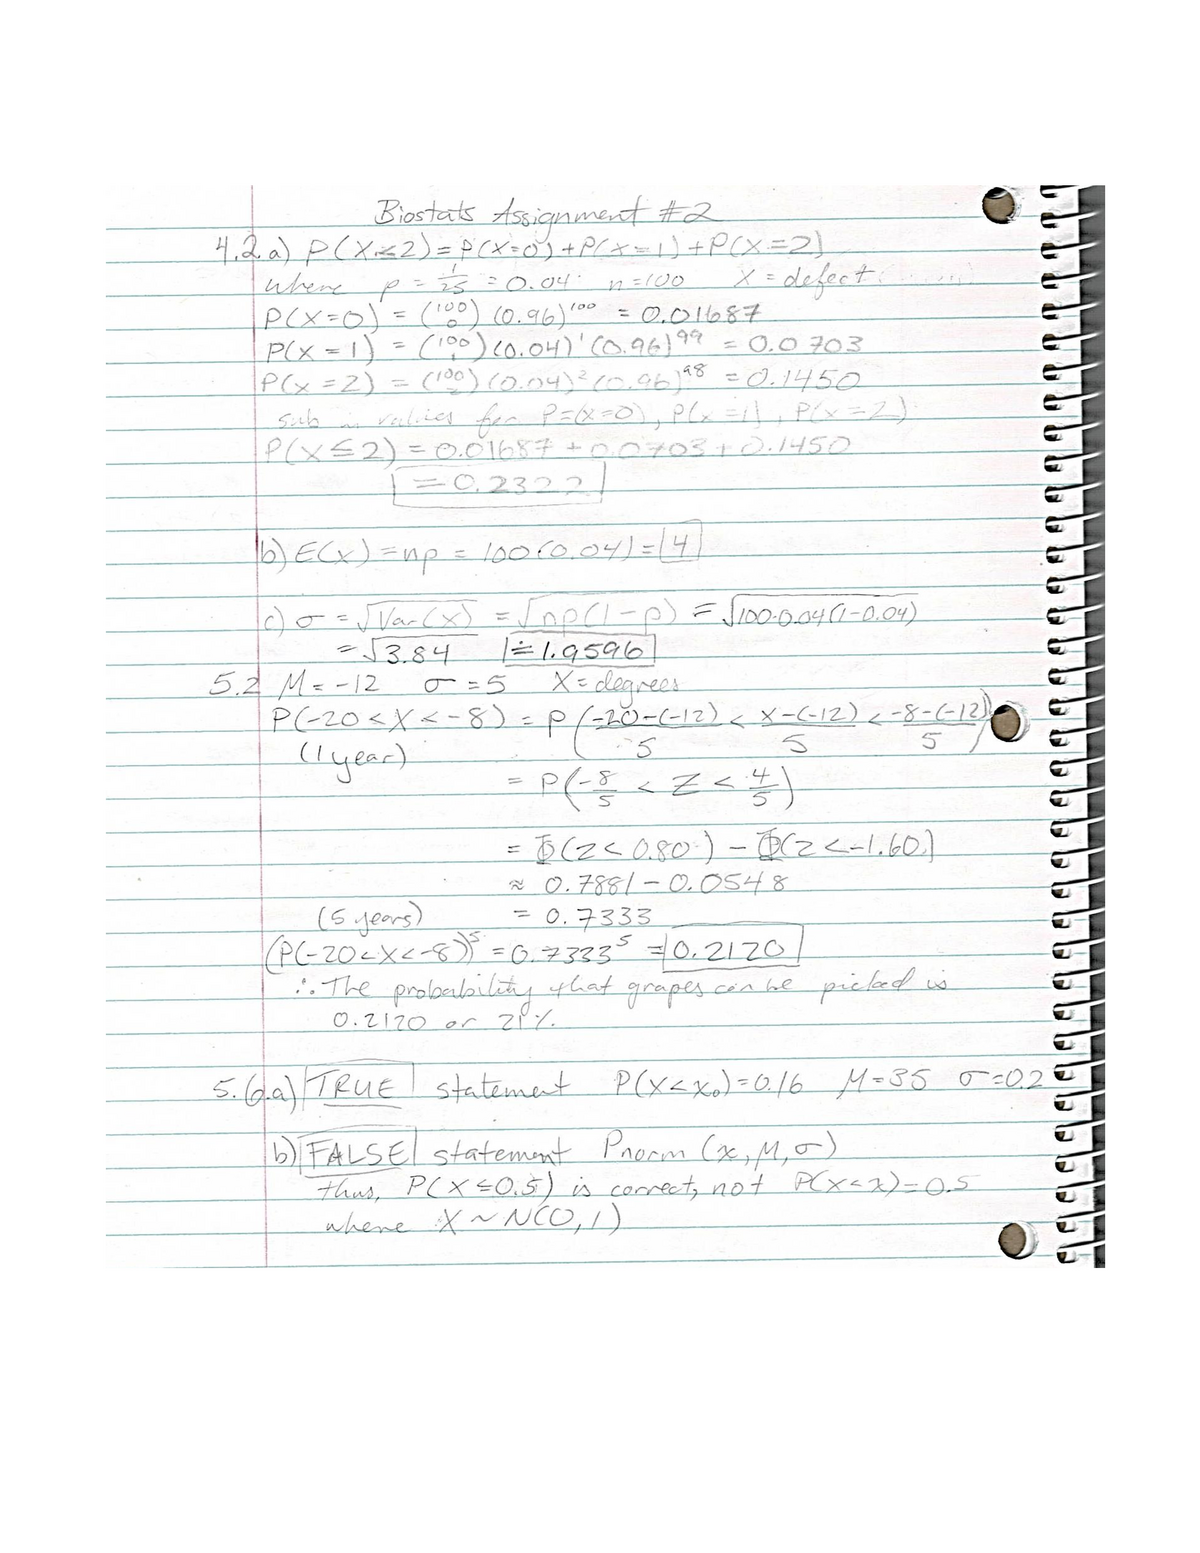 Biostats Assignment #2
4.2.a) P(X≤2) = P(X=0) + P(X=1) + P(X=2)
where p = 1/25 = 0.04 n=100 X = defect
P(X=0) = (100 0) (0.96)^100 = 0.01687
P(X=1) = (100 1) (0.04)^1 (0.96)^99 = 0.0703
P(X=2) = (100 2) (0.04)^2 (0.96)^98 = 0.1450
sub in values for P=(X=0), P(X=1), P(X=2)
P(X≤2) = 0.01687 + 0.0703 + 0.1450
= 0.2322
b) E(X) = np = 100(0.04) = 4
c) σ = √Var(X) = √np(1-p) = √100·0.04(1-0.04)
= √3.84 ≐ 1.9596
5.2 M = -12 σ = 5 X = degrees
P(-20<X<-8) = P(-20-(-12)/5 < X-(-12)/5 < -8-(-12)/5)
(1 year)
= P(-8/5 < Z < 4/5)
= Φ(Z<0.80) - Φ(Z<-1.60)
≈ 0.7881 - 0.0548
(5 years) = 0.7333
(P(-20<X<-8))^5 = 0.7333^5 = 0.2120
∴ The probability that grapes can be picked is
0.2120 or 21%.
5.6.a) TRUE statement P(X<x₀)=0.16 M=35 σ=0.2
b) FALSE statement Pnorm (x, M, σ)
thus, P(X≤0.5) is correct, not P(X<x)=0.5
where X ~ N(0,1)